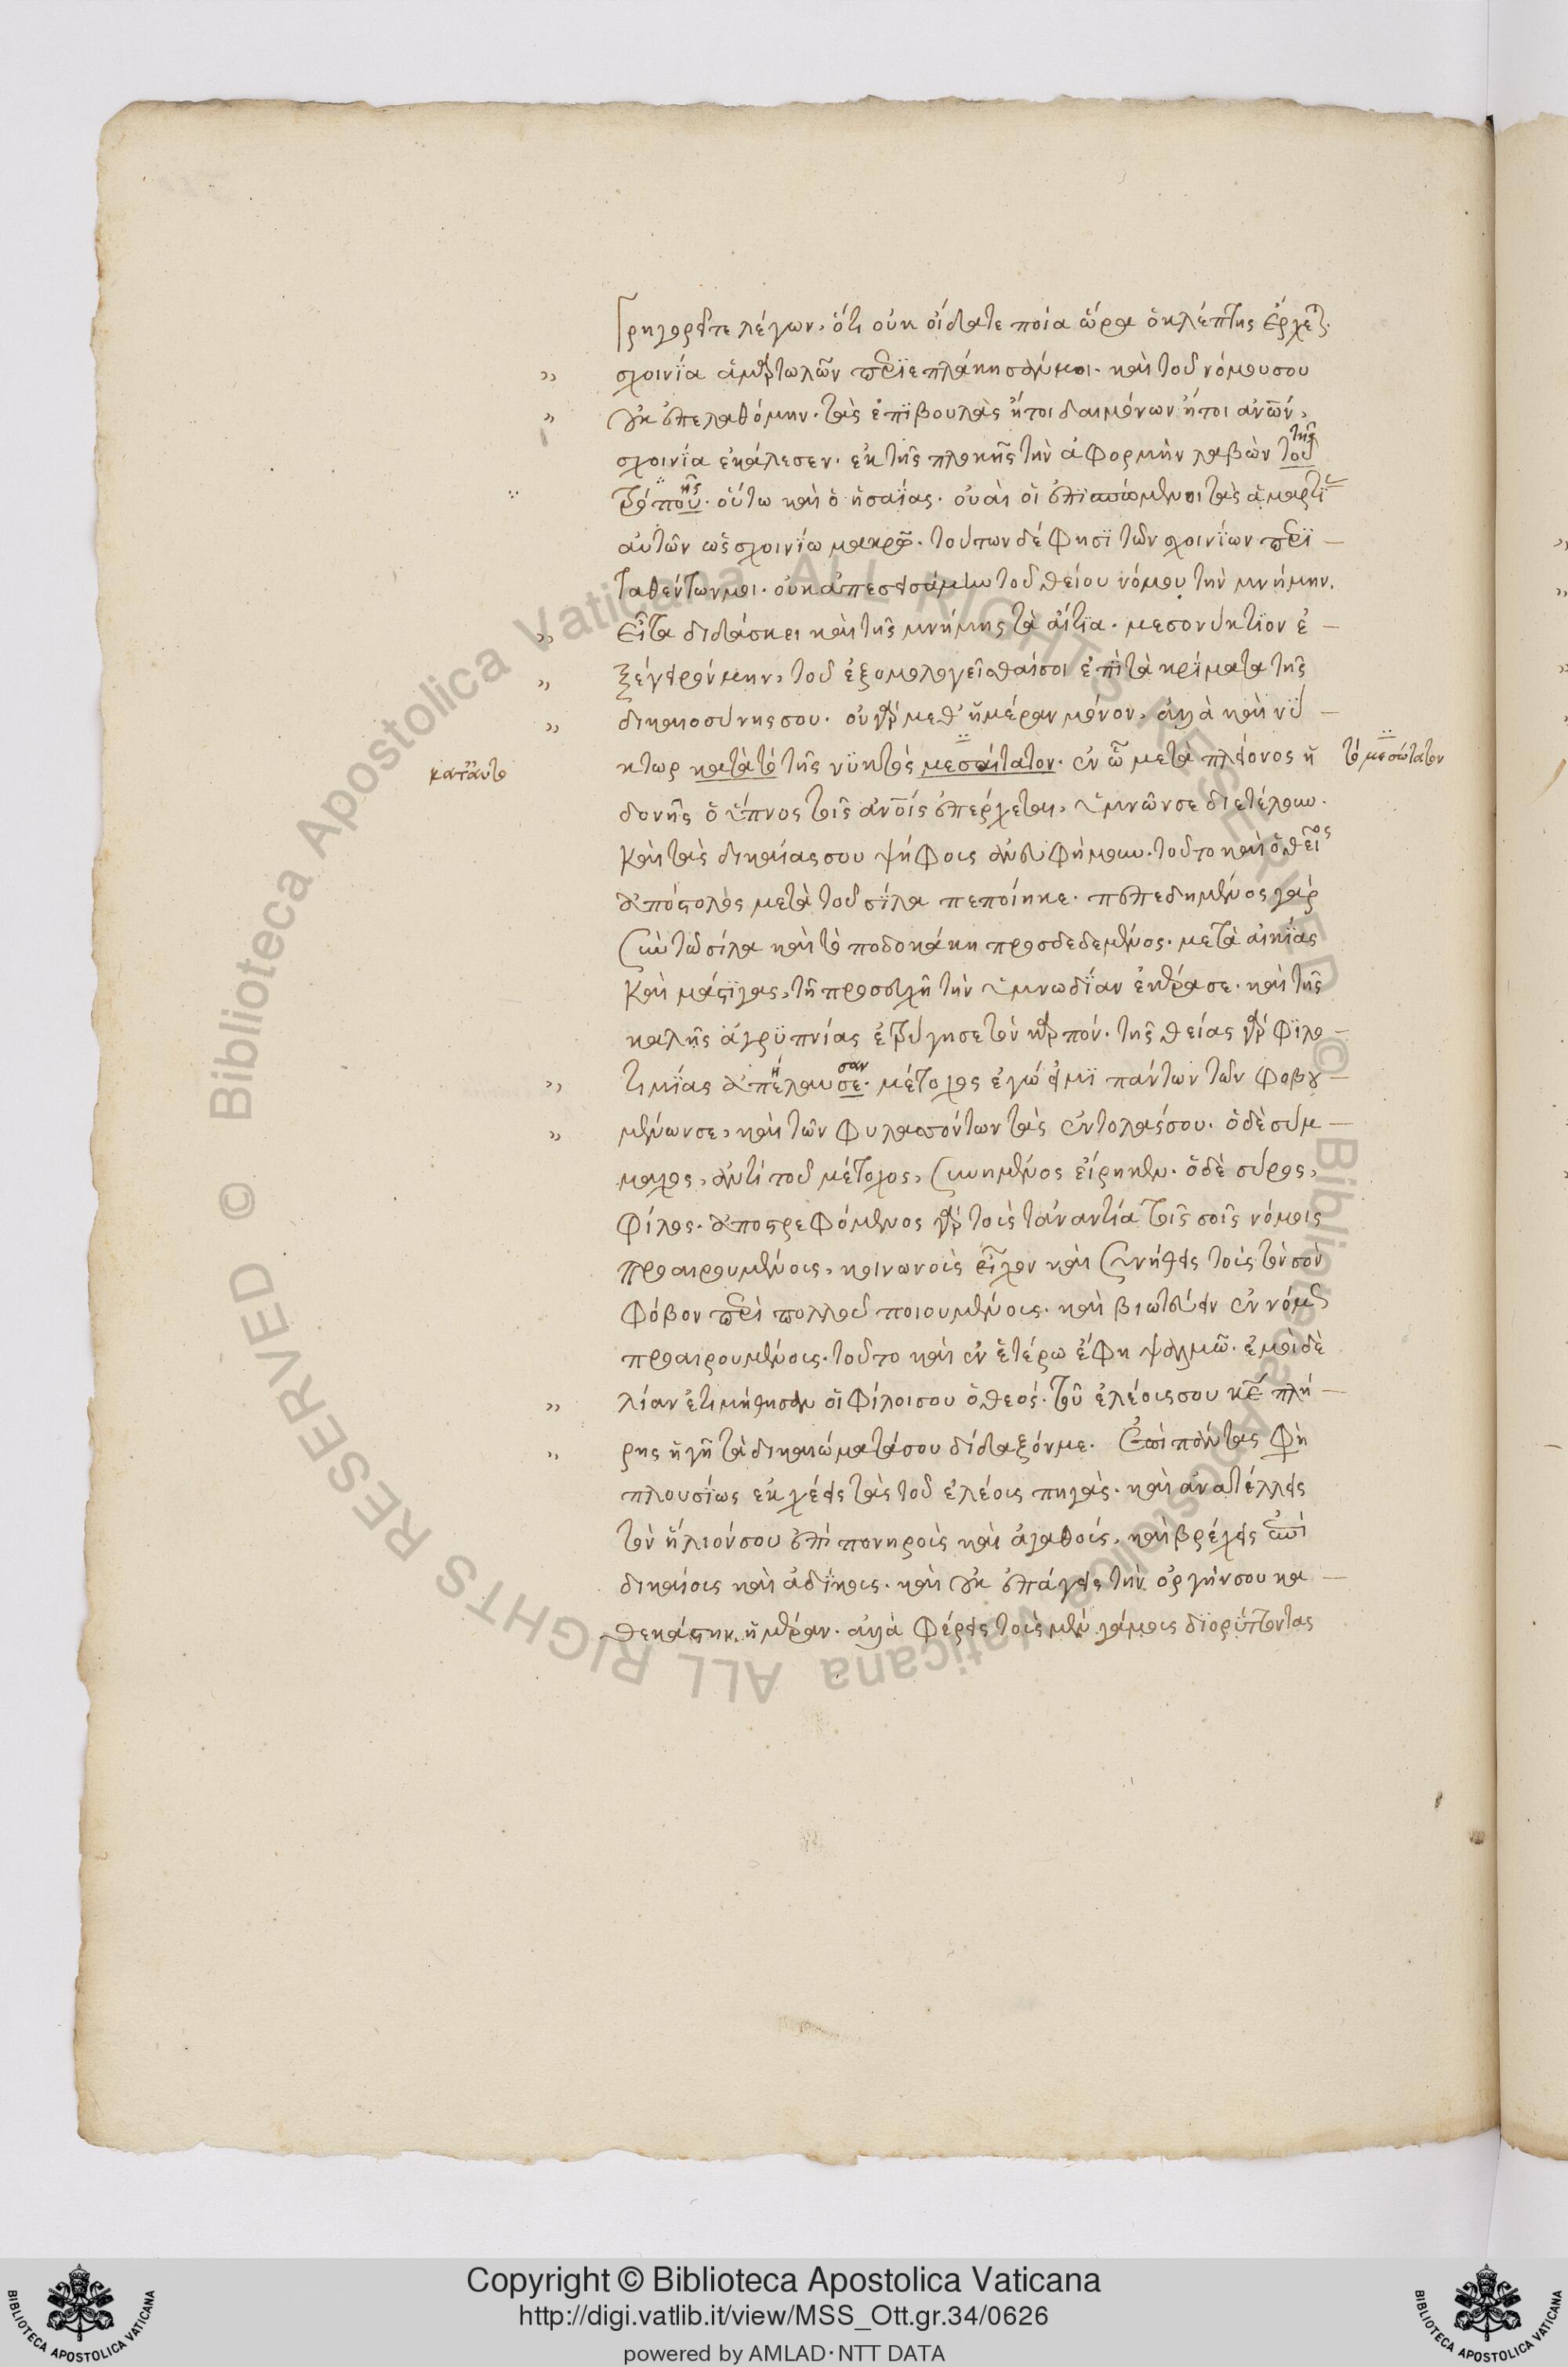 Γρηγορεῖτε λέγων, ὅτι οὐκ οἴδατε ποία ὥρα ὁ κλέπτης ἔρχετ.
σχοινΐα ἁμαρτωλῶν περϊεπλάκησάν μοι. καὶ τοῦ νόμου σου
οὐκ ἐπελαθόμην. τὰς ἐπϊβουλὰς ἤτοι δαιμόνων ἤτοι ἀνῶν,
σχοινία ἐκάλεσεν. ἐκ τῆς πλοκῆς τὴν ἀφορμὴν λαβὼν τοῦ
τῆς
τρόπου. οὕτω καὶ ὁ ἡσαΐας. οὐαὶ οἱ ἐπϊσπώμενοι τὰς ἁμαρτϊ
ῆς
αὐτῶν ὡς σχοινΐω μακρῶ. τούτων δέ φησϊ τῶν σχοινΐων περϊ
ταθέντων μοι. οὐκ ἀπεσεισάμην τοῦ θείου νόμου τὴν μνήμην.
Εἶτα διδάσκει καὶ τῆς μνήμης τὰ αἴτϊα. μεσονύκτϊον ἐ
ξεγειρόμην, τοῦ ἐξομολογεῖσθαί σοι ἐπὶ τὰ κρίματα τῆς
δικαιοσύνης σου. οὐ γὰρ μεθ' ἡμέραν μόνον, ἀλλὰ καὶ νύ
κτωρ κατὰ τὸ τῆς νϋκτὸς μεσαίτατον. ἐν ὧ μετὰ πλείονος ἡ
κατ' αὐτὸ
τὸ μεσώτατον
δονῆς ὁ ὕπνος τοῖς ἀνοῖς ἐπέρχεται, ὑμνῶν σε διετέλουν.
Καὶ τὰς δικαίας σου ψήφοις ἀνευφήμουν. τοῦτο καὶ ὁ θεῖος
ἀπόστολος μετὰ τοῦ σΐλα πεποίηκε. πεπεδημένος γὰρ
σὺν τῶ σίλα καὶ τὸ ποδοκάκη προσδεδεμένος. μετὰ αἰκΐας
Καὶ μάστϊγας, τῆ προσευχῆ τὴν ὑμνωδΐαν ἐκέρασε. καὶ τῆς
καλῆς ἀγρϋπνίας ἐτρύγησε τὸν καρπόν. τῆς θείας γὰρ φϊλο
τιμΐας ἀπέλαυσε. μέτοχος ἐγώ εἰμϊ πάντων τῶν φοβου
ή σαν
μένων σε, καὶ τῶν φυλασσόντων τὰς ἐντολάς σου. ὁ δὲ σύμ
μαχος, ἀντὶ τοῦ μέτοχος, συνημμένος εἴρηκεν. ὁ δὲ σύρος,
φίλος. ἀποστρεφόμενος γὰρ τοὶς τἀναντία τοῖς σοῖς νόμοις
προαιρουμένοις, κοινωνοὶς εἶχον καὶ συνήθεις τοὶς τὸν σὸν
φόβον περὶ πολλοῦ ποιουμένοις. καὶ βιωτεύειν ἐν νόμῳ
προαιρουμένοις. τοῦτο καὶ ἐν ἑτέρω ἔφη ψαλμῶ. ἐμοὶ δὲ
λίαν ἐτιμήθησαν οἱ φίλοι σου ὁ θεός. τοῦ ἐλέοις σου κε πλή
ρης ἡ γῆ τὰ δικαιώματά σου δίδαξόν με. Ἐπὶ πάντας φὴ
πλουσΐως ἐκχέεις τὰς τοῦ ἐλέοις πηγὰς. καὶ ἀνατέλλεις
τὸν ἥλιόν σου ἐπὶ πονηροὶς καὶ ἀγαθοίς, καὶ βρέχεις ἐπὶ
δικαίοις καὶ ἀδΐκοις. καὶ οὐκ ἐπάγεις τὴν ὀργήν σου κα
θεκάστην ἡμέραν. ἀλλὰ φέρεις τοὶς μὲν γάμοις δϊορύττοντας
Copyright © Biblioteca Apostolica Vaticana
http://digi.vatlib.it/view/MSS_Ott.gr.34/0626
powered by AMLAD · NTT DATA
© Biblioteca Apostolica Vaticana ALL RIGHTS RESERVED
© Biblioteca Apostolica Vaticana ALL RIGHTS RESERVED
BIBLIOTECA APOSTOLICA VATICANA
BIBLIOTECA APOSTOLICA VATICANA